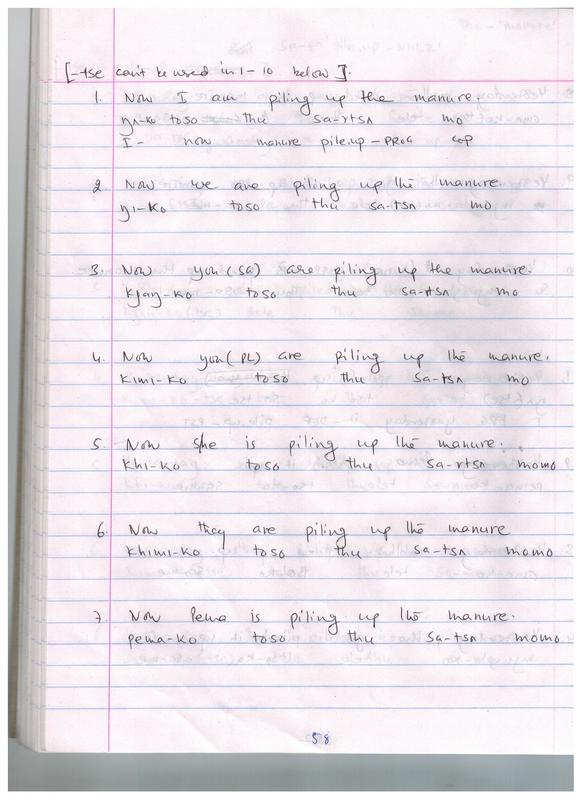 [-tse can't be used in 1-10 below].
1. Now I am piling up the manure.
ŋʌ-ko toso thu sa-rtsʌ mo
I- now manure pile.up-PROG cop
2. Now we are piling up the manure.
ŋi-ko toso thu sa-tsʌ mo
3. Now you (SG) are piling up the manure.
kjaŋ-ko toso thu sa-rtsʌ mo
4. Now you (PL) are piling up the manure.
kimi-ko toso thu sa-tsʌ mo
5. Now she is piling up the manure.
khi-ko toso thu sa-rtsʌ momo
6. Now they are piling up the manure
khimi-ko toso thu sa-tsʌ momo
7. Now Pema is piling up the manure.
pema-ko toso thu sa-tsʌ momo
58